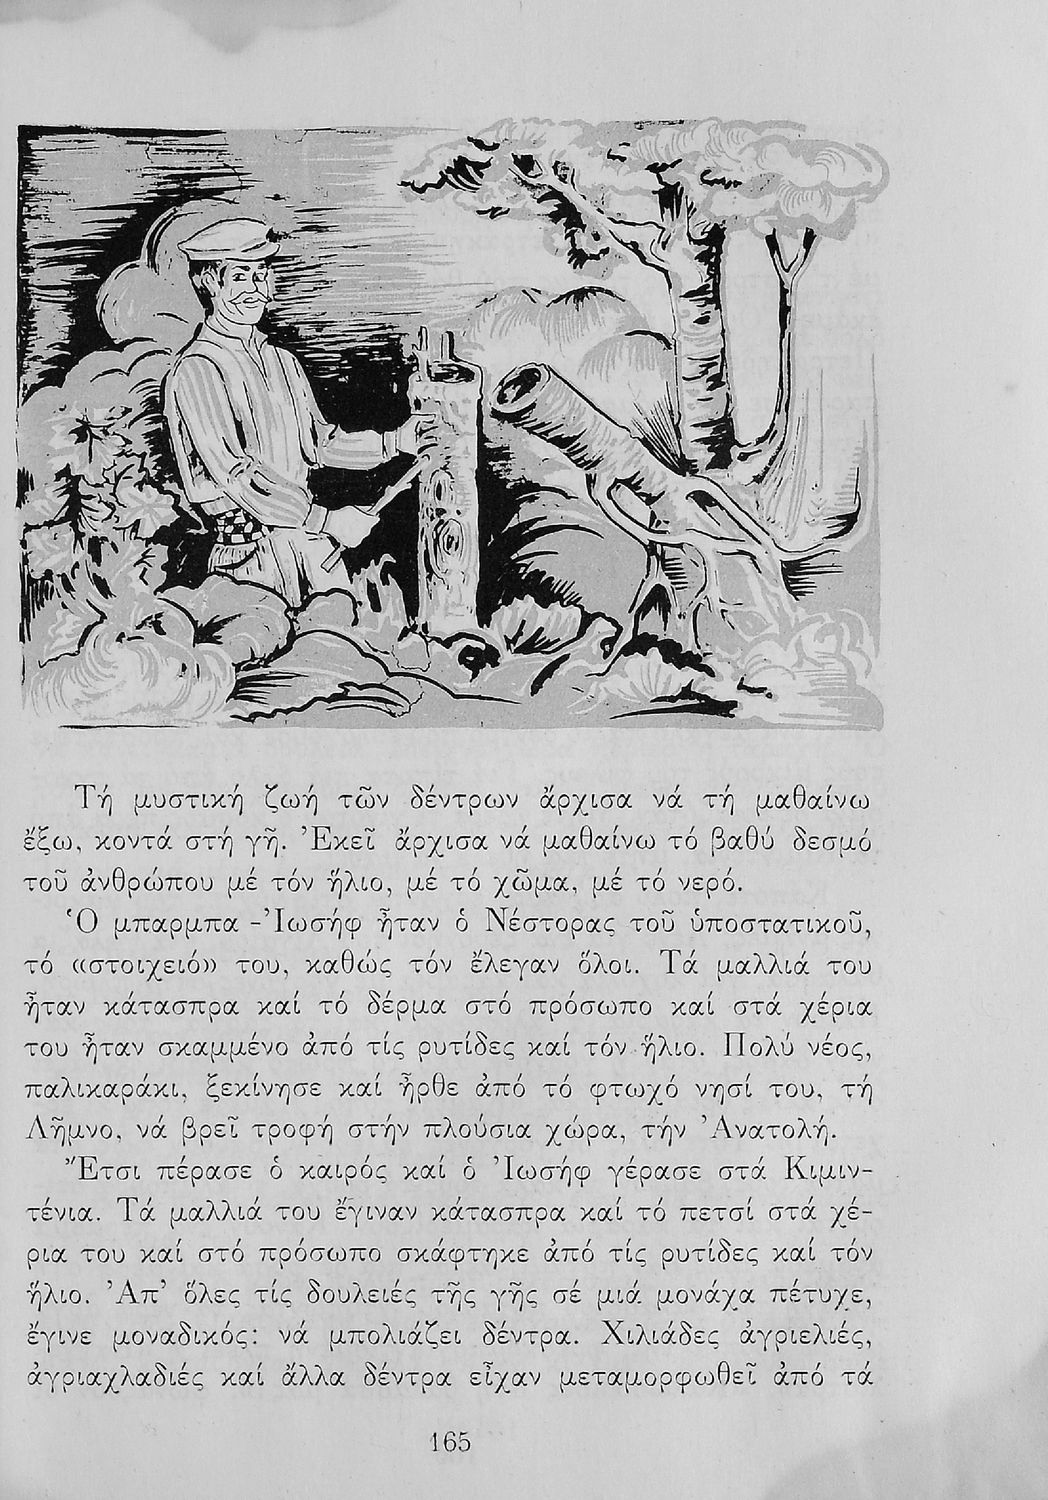 Τή μυστική ζωή τῶν δέντρων ἄρχισα νά τή μαθαίνω
ἔξω, κοντά στή γῆ. Ἐκεῖ ἄρχισα νά μαθαίνω τό βαθύ δεσμό
τοῦ ἀνθρώπου μέ τόν ἥλιο, μέ τό χῶμα, μέ τό νερό.
Ὁ μπαρμπα-Ἰωσήφ ἦταν ὁ Νέστορας τοῦ ὑποστατικοῦ,
τό «στοιχειό» του, καθώς τόν ἔλεγαν ὅλοι. Τά μαλλιά του
ἦταν κάτασπρα καί τό δέρμα στό πρόσωπο καί στά χέρια
του ἦταν σκαμμένο ἀπό τίς ρυτίδες καί τόν ἥλιο. Πολύ νέος,
παλικαράκι, ξεκίνησε καί ἦρθε ἀπό τό φτωχό νησί του, τή
Λῆμνο, νά βρεῖ τροφή στήν πλούσια χώρα, τήν Ἀνατολή.
Ἔτσι πέρασε ὁ καιρός καί ὁ Ἰωσήφ γέρασε στά Κιμιν-
τένια. Τά μαλλιά του ἔγιναν κάτασπρα καί τό πετσί στά χέ-
ρια του καί στό πρόσωπο σκάφτηκε ἀπό τίς ρυτίδες καί τόν
ἥλιο. Ἀπ’ ὅλες τίς δουλειές τῆς γῆς σέ μιά μονάχα πέτυχε,
ἔγινε μοναδικός: νά μπολιάζει δέντρα. Χιλιάδες ἀγριελιές,
ἀγριαχλαδιές καί ἄλλα δέντρα εἶχαν μεταμορφωθεῖ ἀπό τά
165